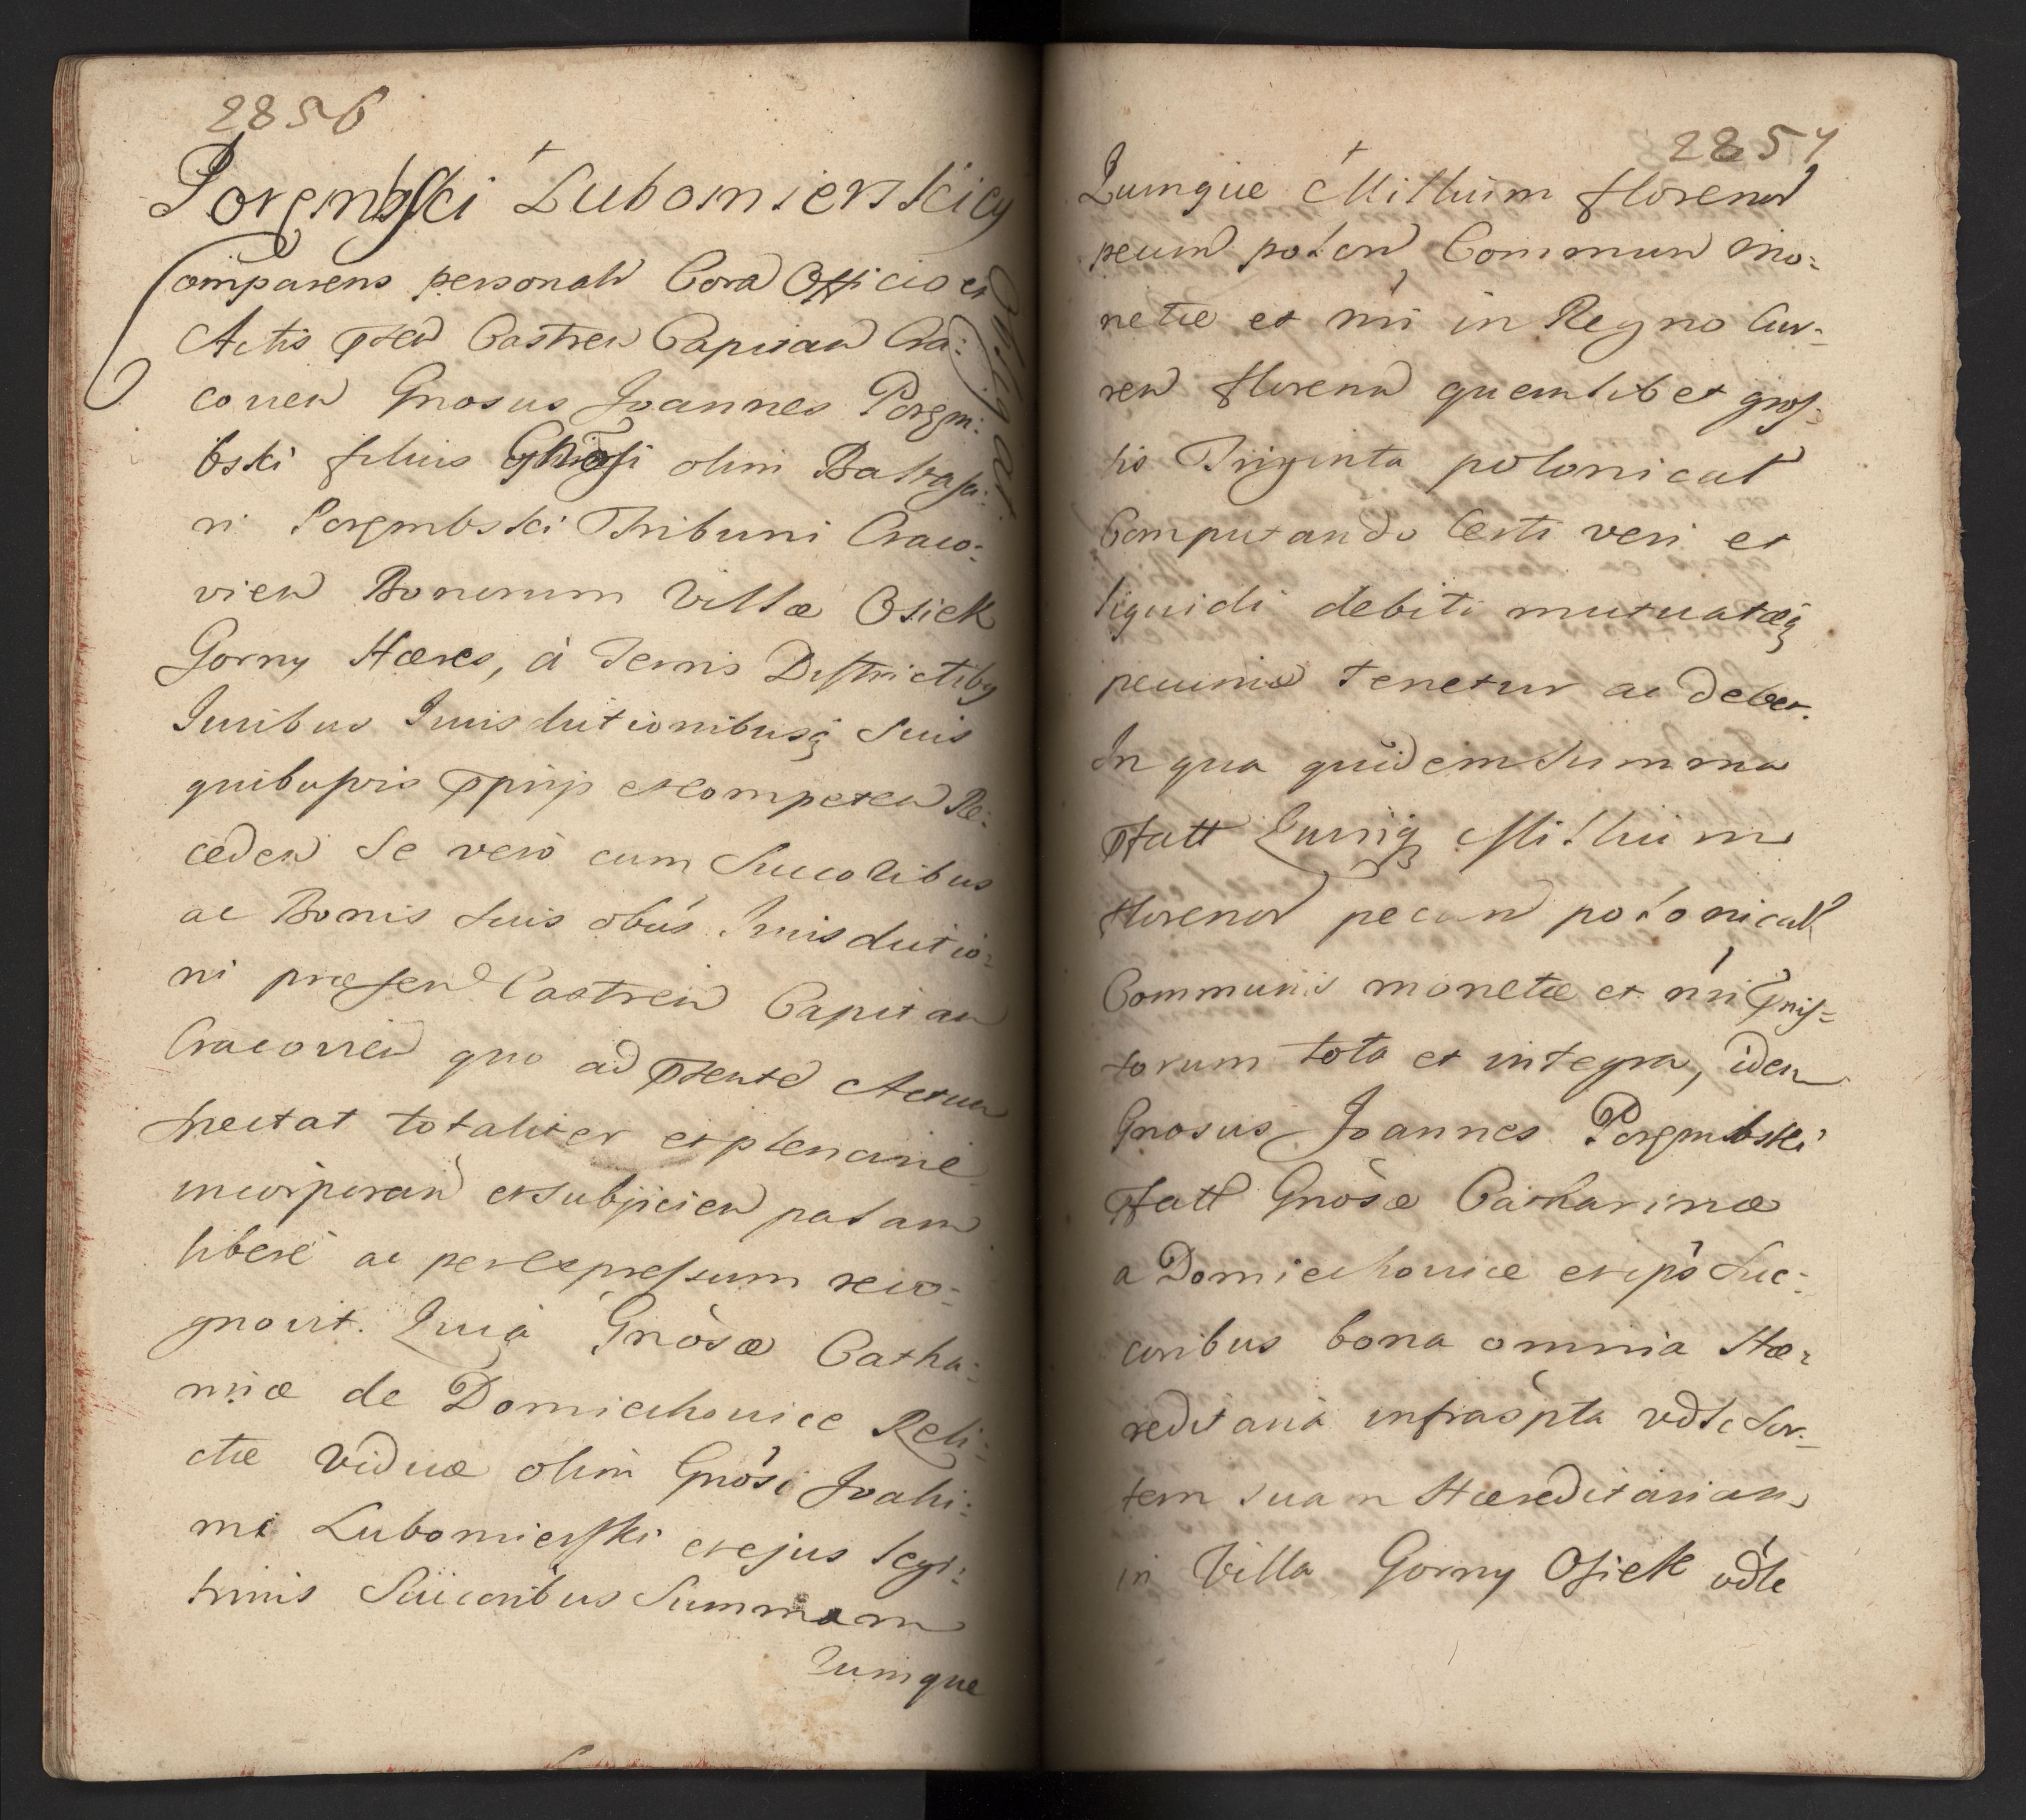 2856
Porembski Lubomierskiey
Obligat
Comparens personalr Cora Officio et
Actis pnten Castren Capitan Cra:
couien Gnosus Joannes Porem:
bski filius Gnosi olim Baltasa:
ri Porembski Tribuni Craco:
vien Bonorum Villæ Osiek
Gorny Hæres, à Terris Districtibq
Juribus Jurisdictionibusq Suis
quibusvis pprijs et competen Re:
ceden Se verò cum Succoribus
ac Bonis Suis obus Jurisdictio:
ni præsen Castren Capitan
Cracovien quo ad pntem Actum
spectat totaliter et plenarie
incorporan et subjicien palam
liberè ac per expressum reco:
gnovit. Quia Gnosæ Catha:
rinæ de Domiechowice Reli:
ctæ Viduæ olim Gnosi Joahi:
mi Lubomierski et ejus legi:
timis Succoribus Summam
Quinque
2857
Quinque Millium florenor
pecun polon Commun mo:
netæ et nri in Regno Cur:
ren florenu quemlibet gros:
sis Triginta polonical
Computando Certi veri et
liquidi debiti mutuatæq
pecuniæ tenetur ac debet.
In qua quidem Summa
pfatt Quinq Millium
florenor pecun polonicall
Communis monetæ et nri pnis=
torum tota et integra, idem
Gnosus Joannes Porembski
pfatt Gnosæ Catharinæ
a Domiechowice et ips Suc:
coribus bona omnia Hæ:
reditaria infrascpta vdlt Sor:
tem suam Hæreditariam
in Villa Gorny Osiek vdlt